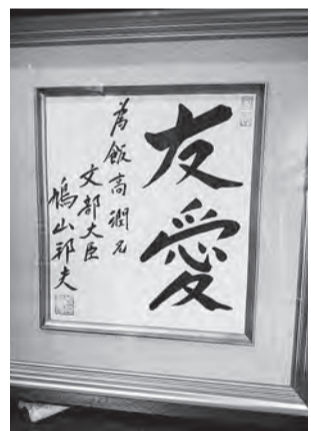 友愛
為飯高潤兄
文部大臣
鳩山邦夫